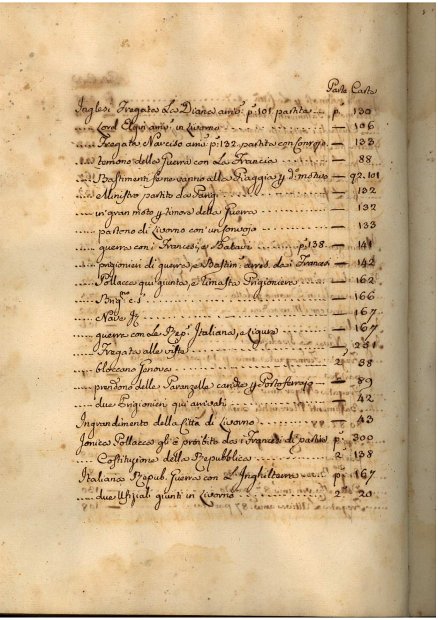 Parte Carta
Inglesi Fregata La Diana amō: pª 101 partita — pª 130
Lord Elgin amō: in Livorno — 106
Fregata Narciso amō: p: 132. partita con Convojo — 133
temono della Guerra con La Francia — 88
Bastimenti se ne vanno alla Piaggia — 92. 101
Ministro partito da Parigi — 132
in gran moto y timore della Guerra — 132
partono di Livorno con un Convojo — 133
guerra con Francesi, e Batavi pª 138 — 141
prigionieri di guerra, e Bastim: da i Francesi — 142
Pollacca qui giunta, e rimasta Prigioniera — 162
Brig: — 166
Nave — 167
guerra con La Repª Italiana, e Ligure — 167
Fregata alle viste — 231
bloccano Genova 2ª 38
prendono delle Paranzelle Portoferrajo — 89
due Prigionieri qui arrivati — 42
Ingrandimento della Città di Livorno — 43
Jonica Pollacca gl'è proibito da i Francesi di partire pª 300
Costituzione della Repubblica 2 138
Italiana Repub. Guerra con L'Inghilterra pª 167
due Ufiziali giunti in Livorno 2ª 20